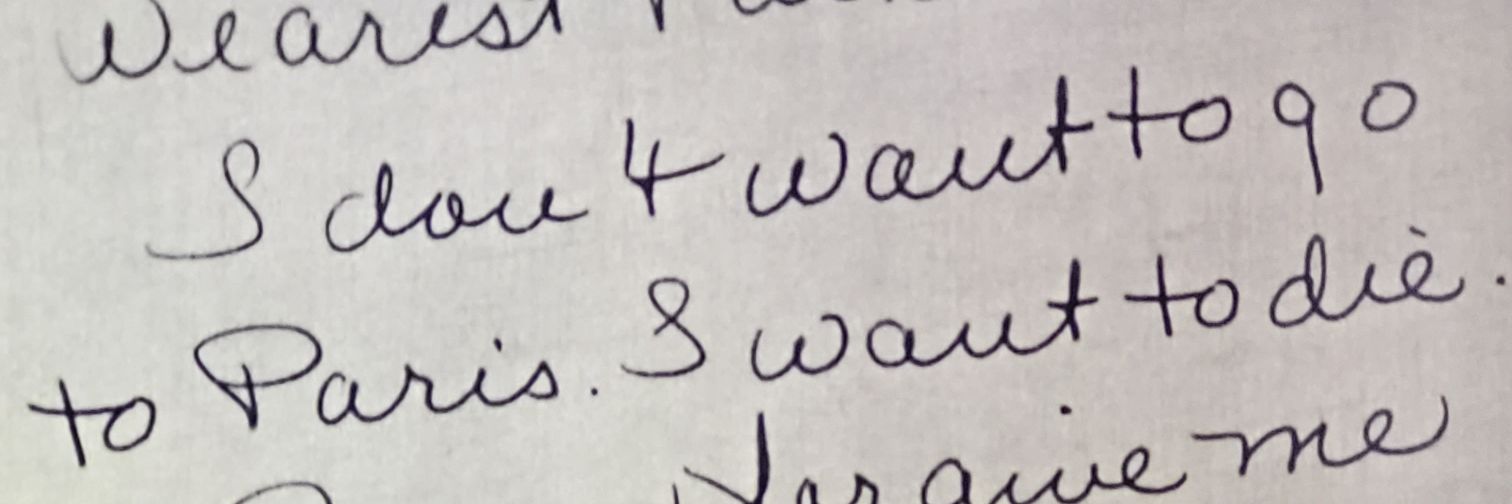 Dearest
I don't want to go
to Paris. I want to die.
forgive me